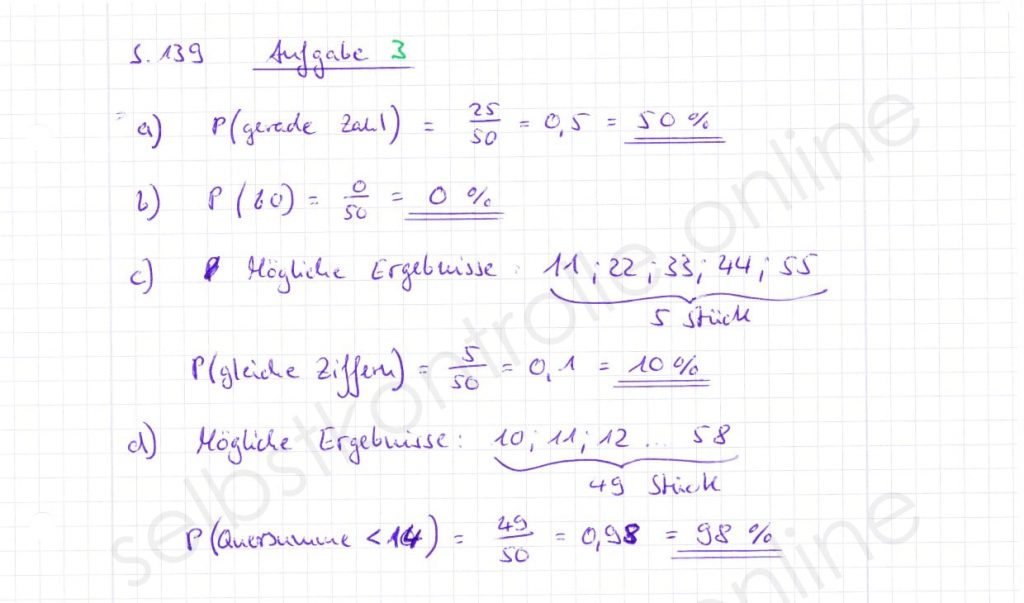 S. 139 Aufgabe 3
a) P(gerade Zahl) = 25/50 = 0,5 = 50 %
b) P(60) = 0/50 = 0 %
c) Mögliche Ergebnisse: 11; 22; 33; 44; 55
5 Stück
P(gleiche Ziffern) = 5/50 = 0,1 = 10 %
d) Mögliche Ergebnisse: 10; 11; 12 ... 58
49 Stück
P(Quersumme < 14) = 49/50 = 0,98 = 98 %
selbstkontrolle online
online